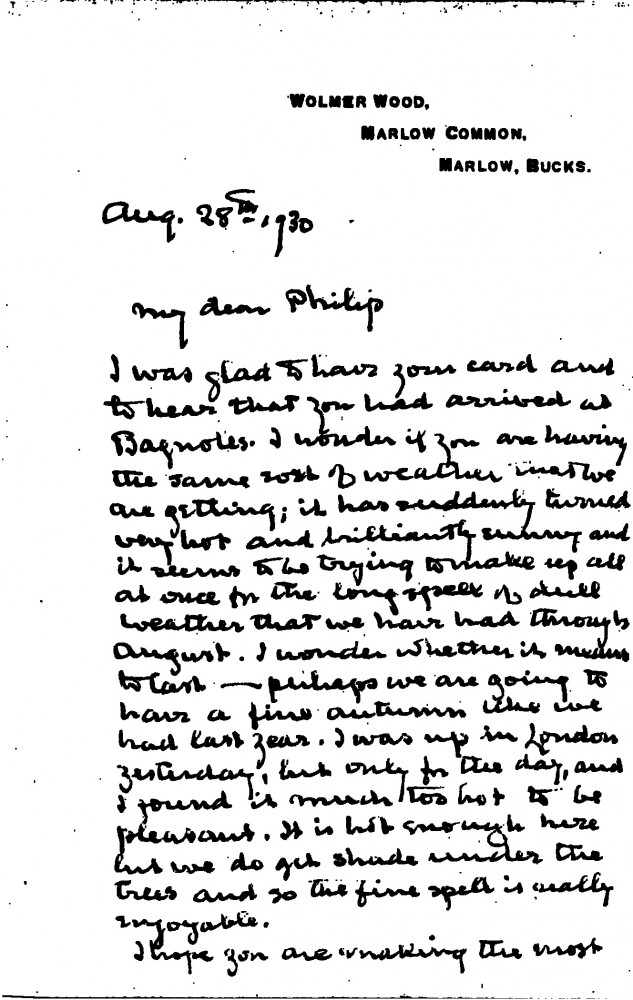 WOLMER WOOD,
MARLOW COMMON,
MARLOW, BUCKS.
Aug. 28th, 1930
My dear Philip
I was glad to have your card and
to hear that you had arrived at
Bagnoles. I wonder if you are having
the same sort of weather that we
are getting; it has suddenly turned
very hot and brilliantly sunny and
it seems to be trying to make up all
at once for the long spell of dull
weather that we have had through
August. I wonder whether it means
to last — perhaps we are going to
have a fine autumn like we
had last year. I was up in London
yesterday, but only for the day, and
I found it much too hot to be
pleasant. It is hot enough here
but we do get shade under the
trees and so the fine spell is really
enjoyable.
I hope you are making the most